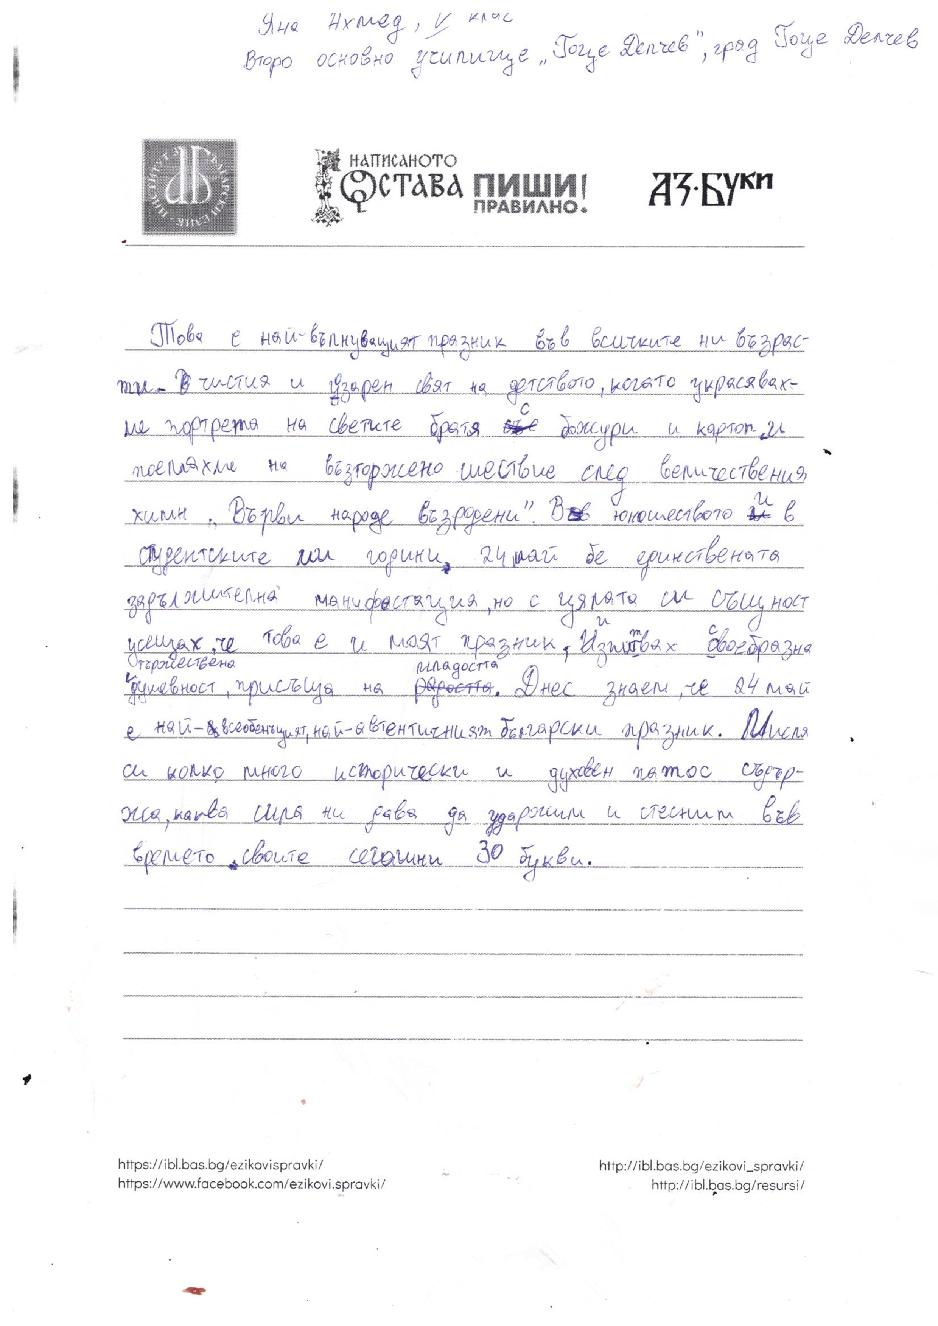 Яна Ахмед, V клас
Второ основно училище „Гоце Делчев", град Гоце Делчев
НАПИСАНОТО
ОСТАВА ПИШИ!
ПРАВИЛНО.
АЗ·БУКИ
Това е най-вълнуващият празник във всичките ни възрас-
ти. В чистия и озарен свят на детството, когато украсявах-
ме портрета на светите братя с божури и картоп, и
поемахме на възторжено шествие след величествения
химн „Върви народе възродени". В юношеството и в
студентските ми години, 24 май бе единствената
задължителна манифестация, но с цялата си същност
усещах, че това е и моят празник, Изпитвах своеобразна
тържествена
душевност, присъща на младостта. Днес знаем, че 24 май
е най-всеобщият, най-автентичният български празник. Мисля
си колко много исторически и духовен патос съдър-
жа, каква сила ни дава да удържим и стесним във
времето своите сегашни 30 букви.
https://ibl.bas.bg/ezikovispravki/
https://www.facebook.com/ezikovi.spravki/
http://ibl.bas.bg/ezikovi_spravki/
http://ibl.bas.bg/resursi/